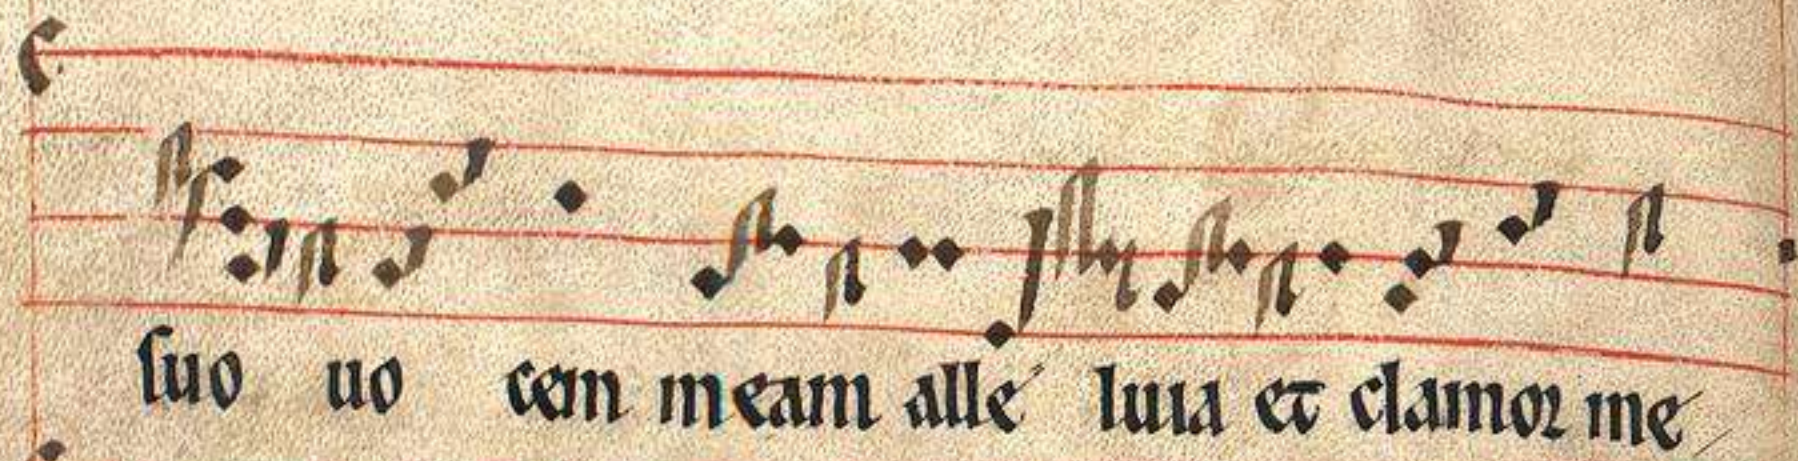 suo uo cem meam alle luia et clamor me